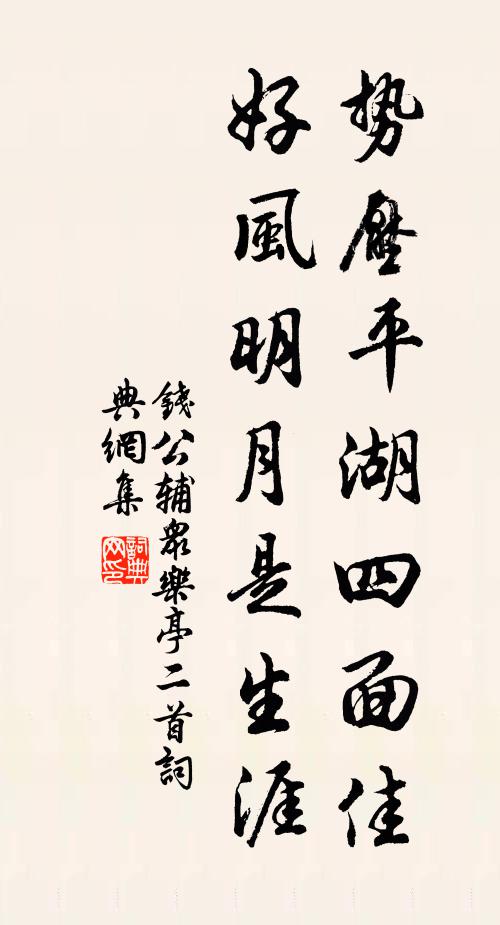 势壓平湖四面佳
好風明月是生涯
錢公輔眾樂亭二首詞
典網集
詞典網印